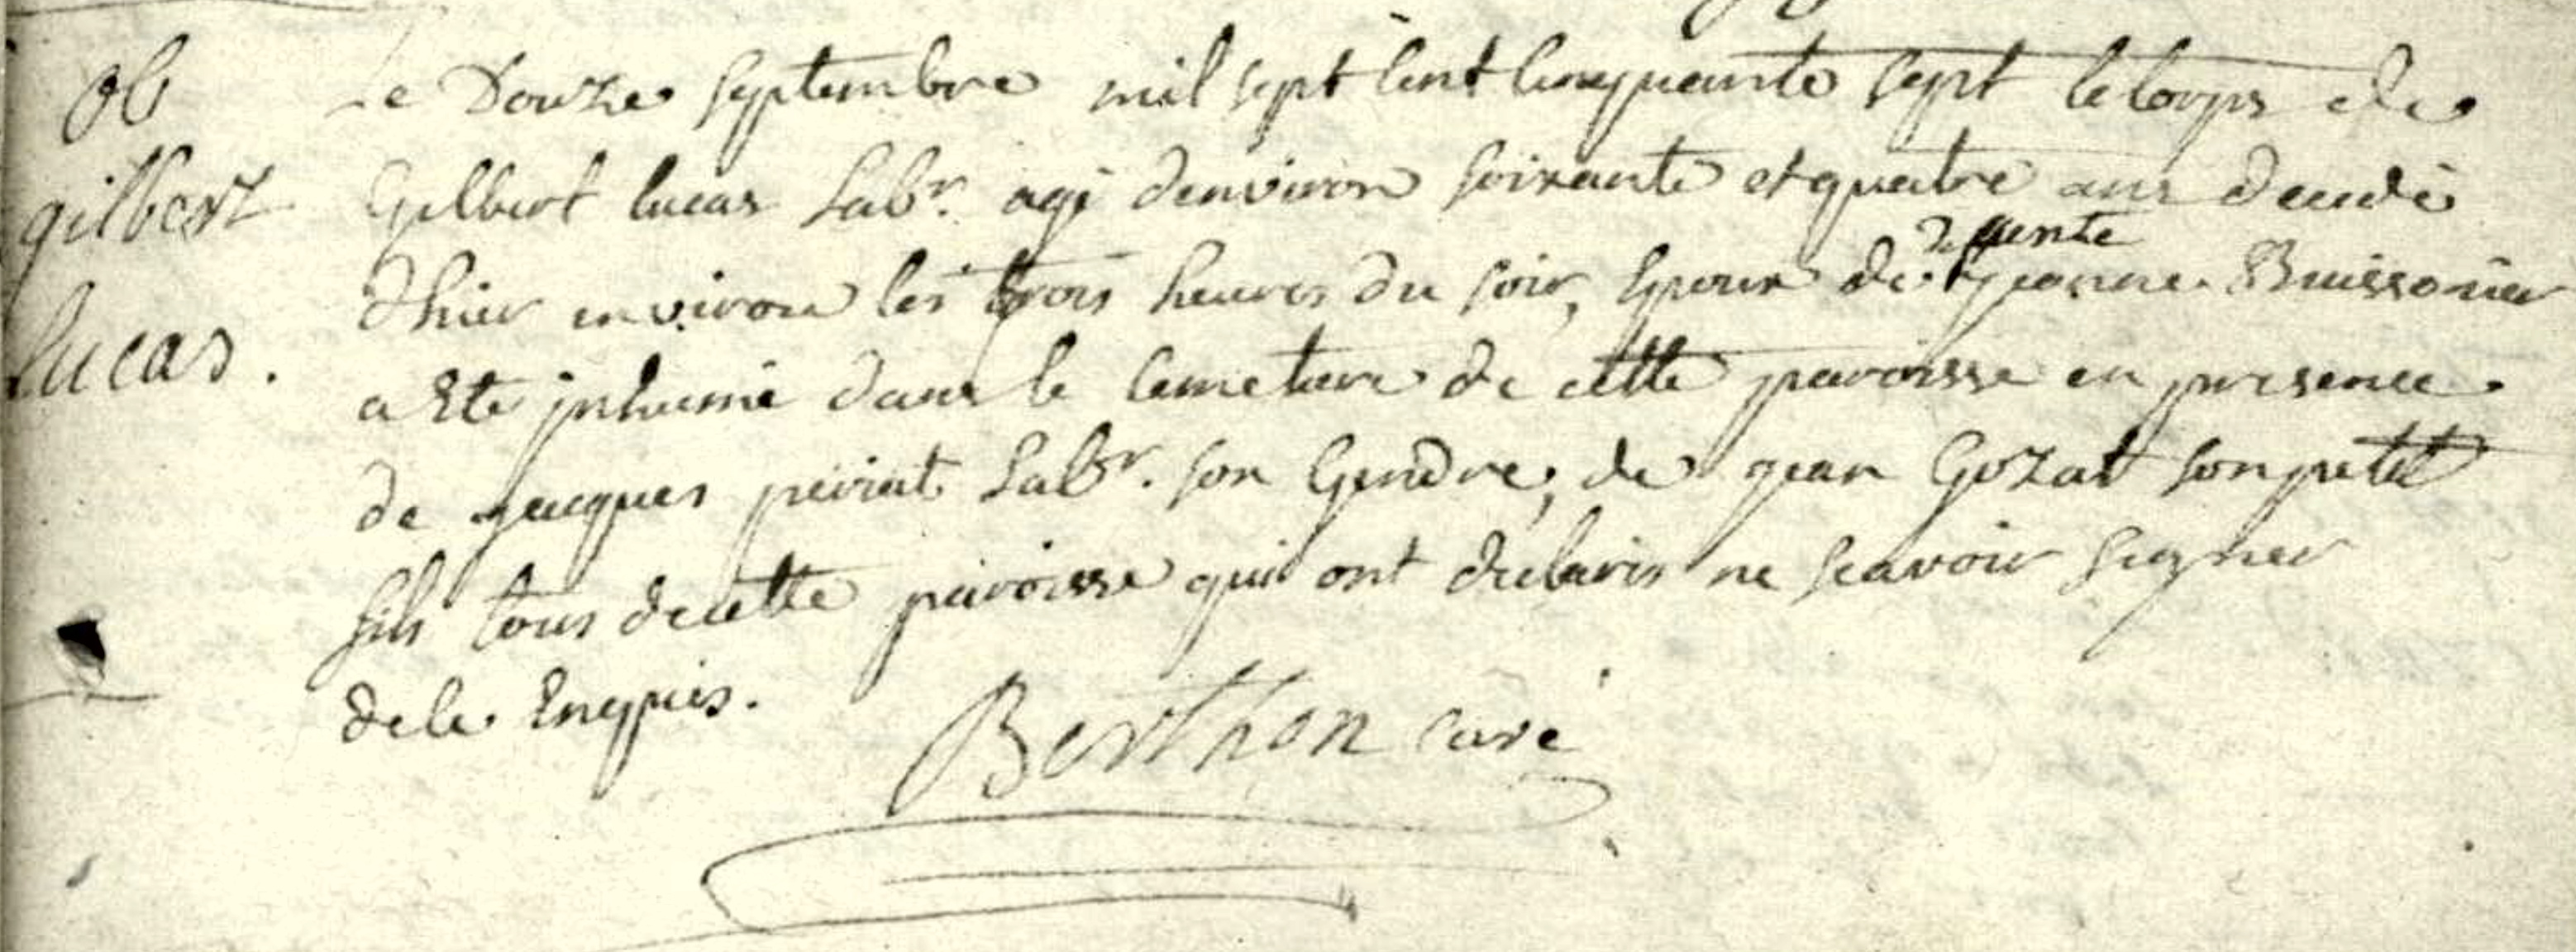 ob
gilbert
lucas.
Le Douze septembre mil sept cent cinquante sept le corps de
Gilbert lucas Labr. agé denviron soixante et quatre ans decedé
dhier environ les trois heures du soir, Epoux de deffunte jeanne Buissonier
a Eté jnhumé dans le cemetiere de cette paroisse en presence
de jacques periat Labr. son Gendre, de jean Gozat son petit
fils tous de cette paroisse qui ont declarés ne scavoir signer
de ce Enquis.
Berthon curé